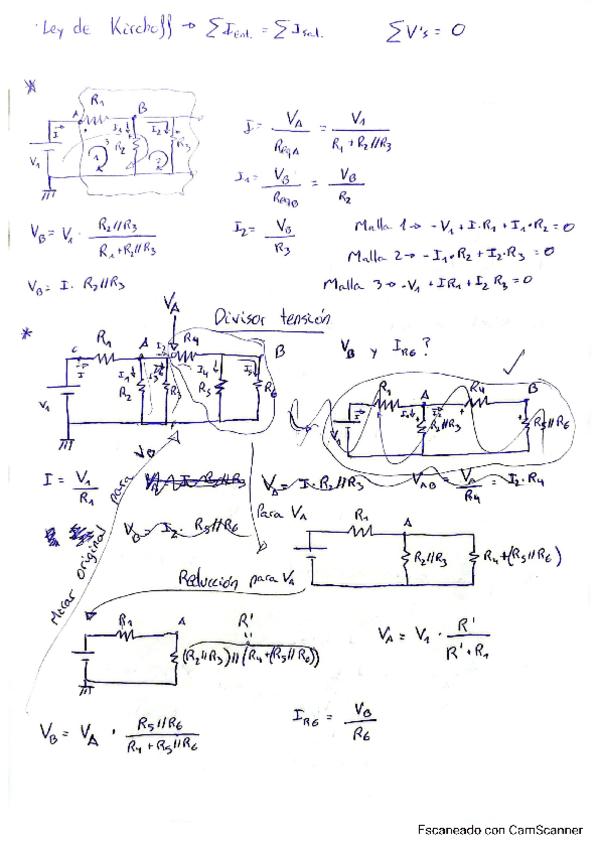 Ley de Kirchoff → ΣI ent. = ΣI sal. ΣV's = 0
*
R1 A B
I I1 I2
V1 R2 R3
1 2 3
I = VA / ReqA = V1 / (R1 + R2//R3)
I1 = VB / ReqB = VB / R2
VB = V1 · R2//R3 / (R1 + R2//R3)
I2 = VB / R3
Malla 1 → -V1 + I·R1 + I1·R2 = 0
Malla 2 → -I1·R2 + I2·R3 = 0
VB = I · R2//R3
Malla 3 → -V1 + IR1 + I2 R3 = 0
VA
Divisor tensión
*
R1 A R4 B
VB y IR6?
C I I1 I2 I3 I4
V1 R2 R3 R5 R6
R1 A R4 B
I I2
V1 R2//R3 R5//R6
I = V1 / R1
VA = I · R2//R3
VAB = VA / R4 = I2 · R4
VB = I2 · R5//R6
Para VA
Mirar original para
R1 A
R2//R3 R4+(R5//R6)
Reducción para VA
R1 A R'
(R2//R3)//(R4+(R5//R6))
VA = V1 · R' / (R' + R1)
VB = VA · R5//R6 / (R4 + R5//R6)
IR6 = VB / R6
Escaneado con CamScanner